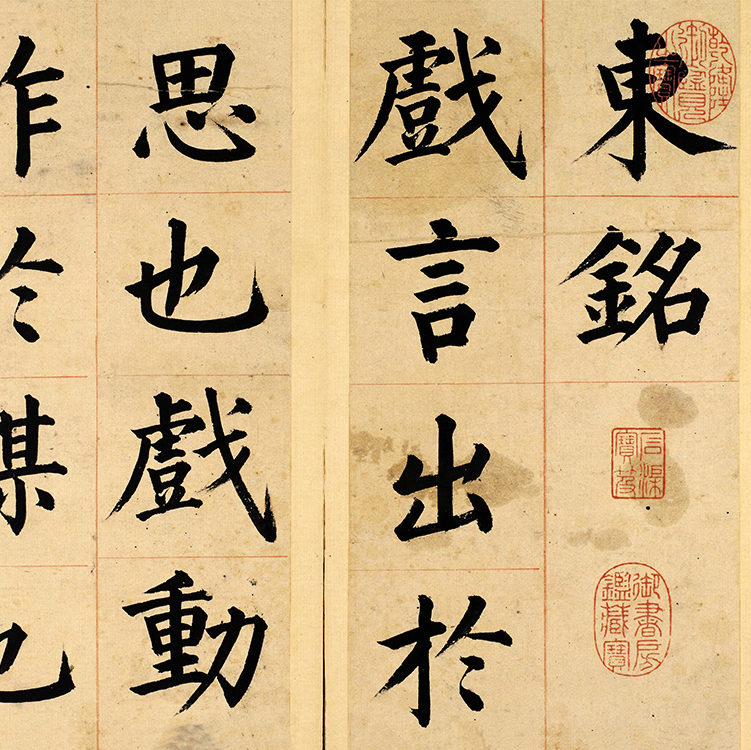 東銘
乾隆御覽之寶
石渠寶笈
御書房鑑藏寶
戲言出於
思也戲動
作於謀也